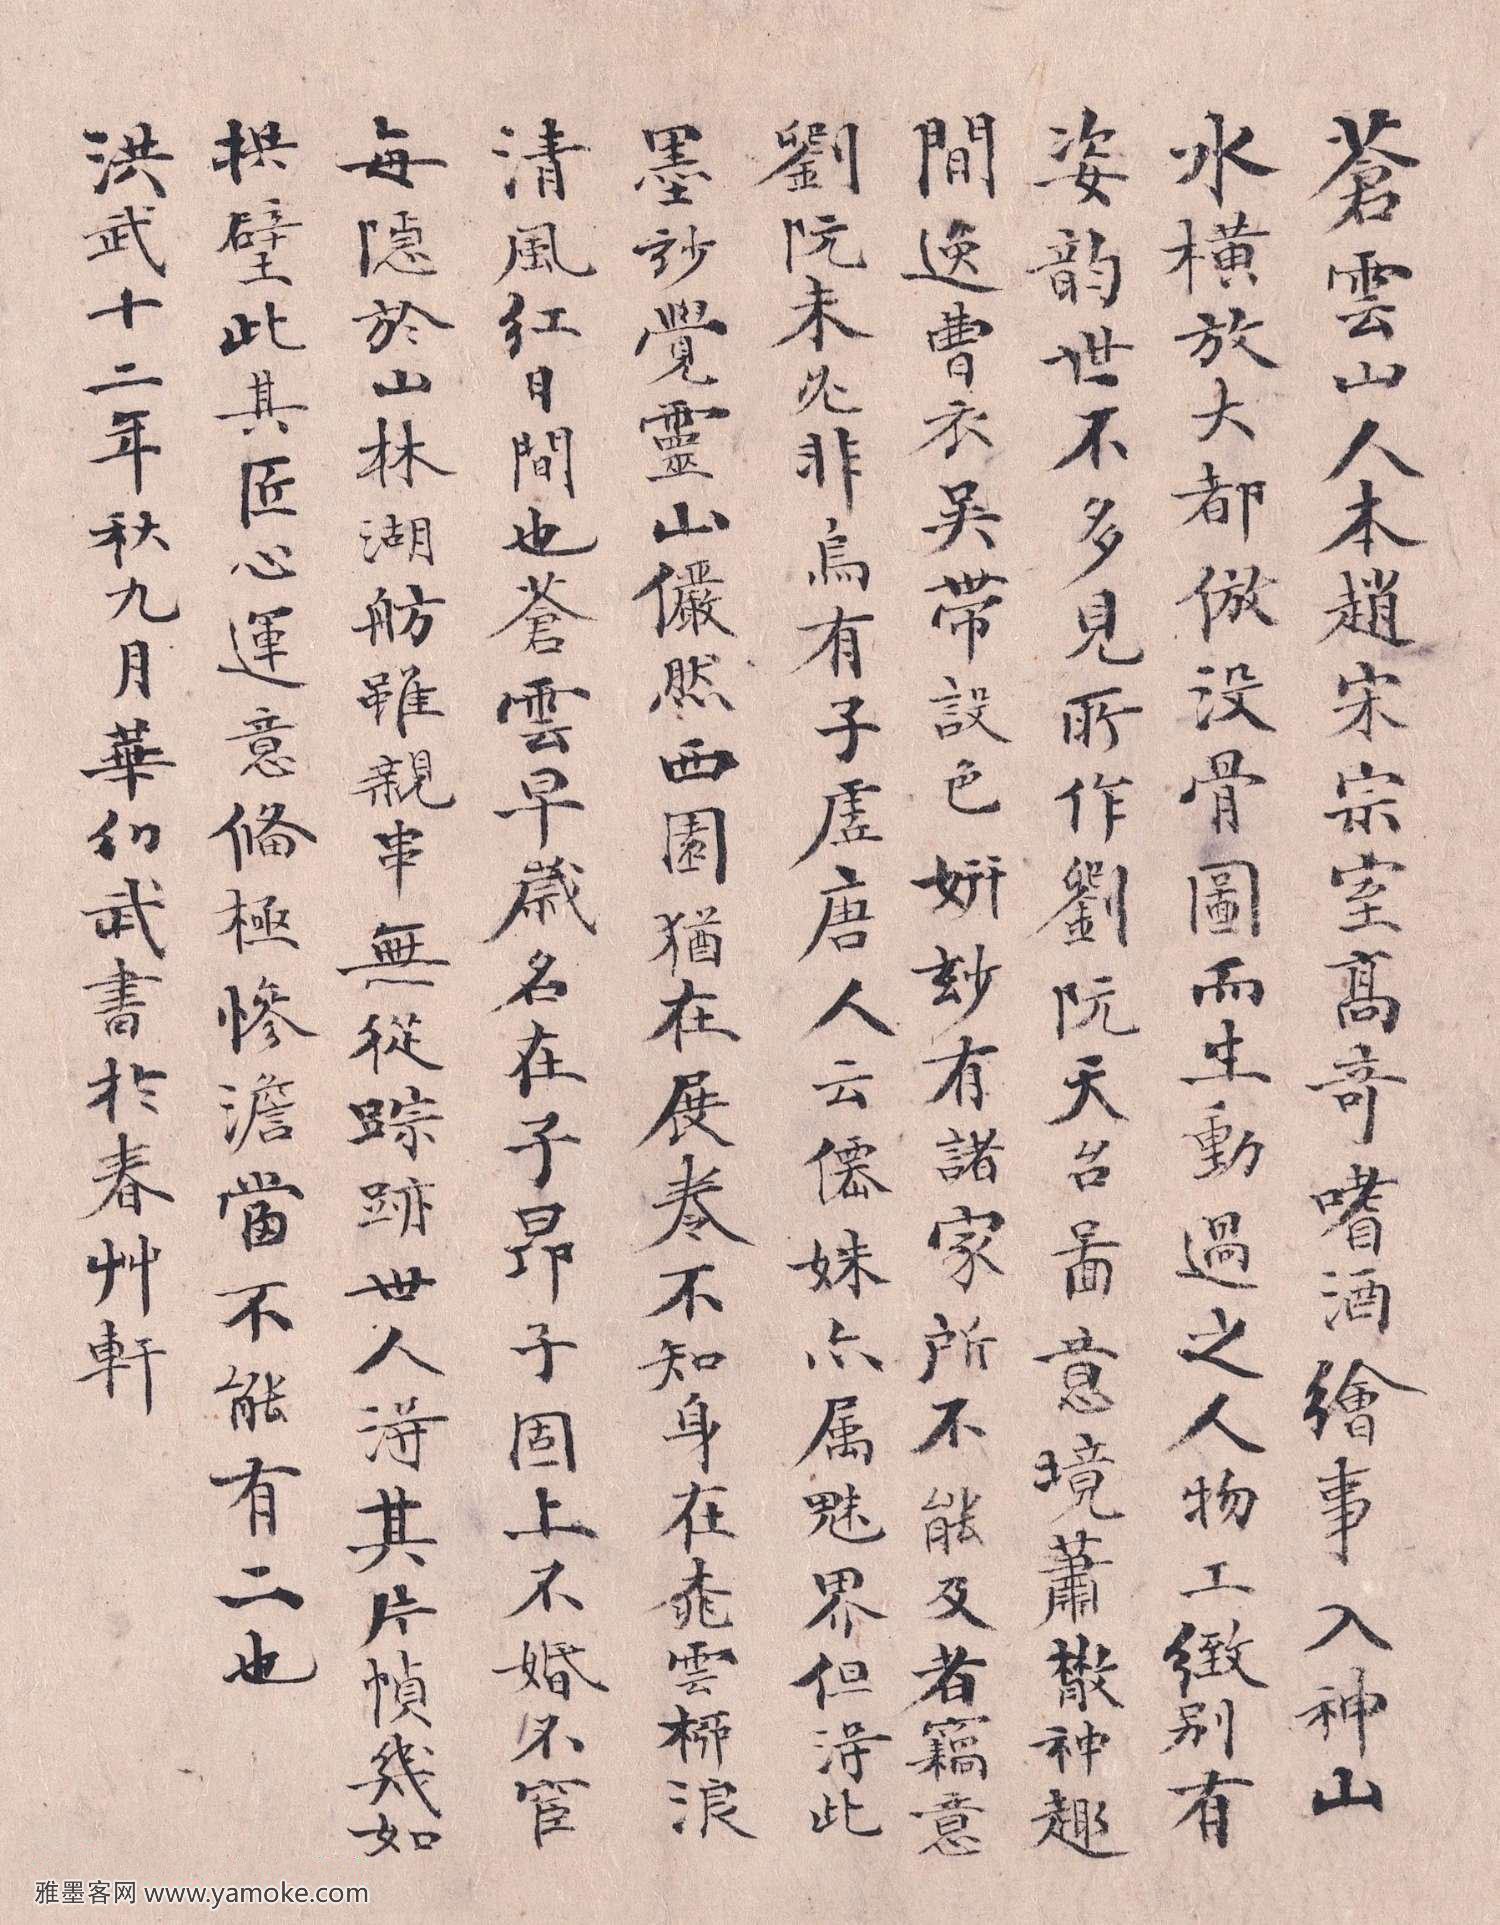 蒼雲山人本趙宋宗室高奇嗜酒繪事入神山
水橫放大都倣没骨圖而生動過之人物工緻别有
姿韵世不多見所作劉阮天台啚意境蕭散神趣
間逸曹衣吴带設色妍玅有諸家所不能及者竊意
劉阮未必非烏有子虛唐人云僊姝亦属魅界但淂此
墨玅覺靈山儼然西園猶在展卷不知身在桃雲栁浪
清風紅日間也蒼雲早歲名在子昂子固上不婚不宦
每隱於山林湖舫雖親串無從踪跡世人淂其片幀幾如
拱璧此其匠心運意脩極慘澹當不能有二也
洪武十二年秋九月華幻武書於春艸軒
雅墨客网 www.yamoke.com